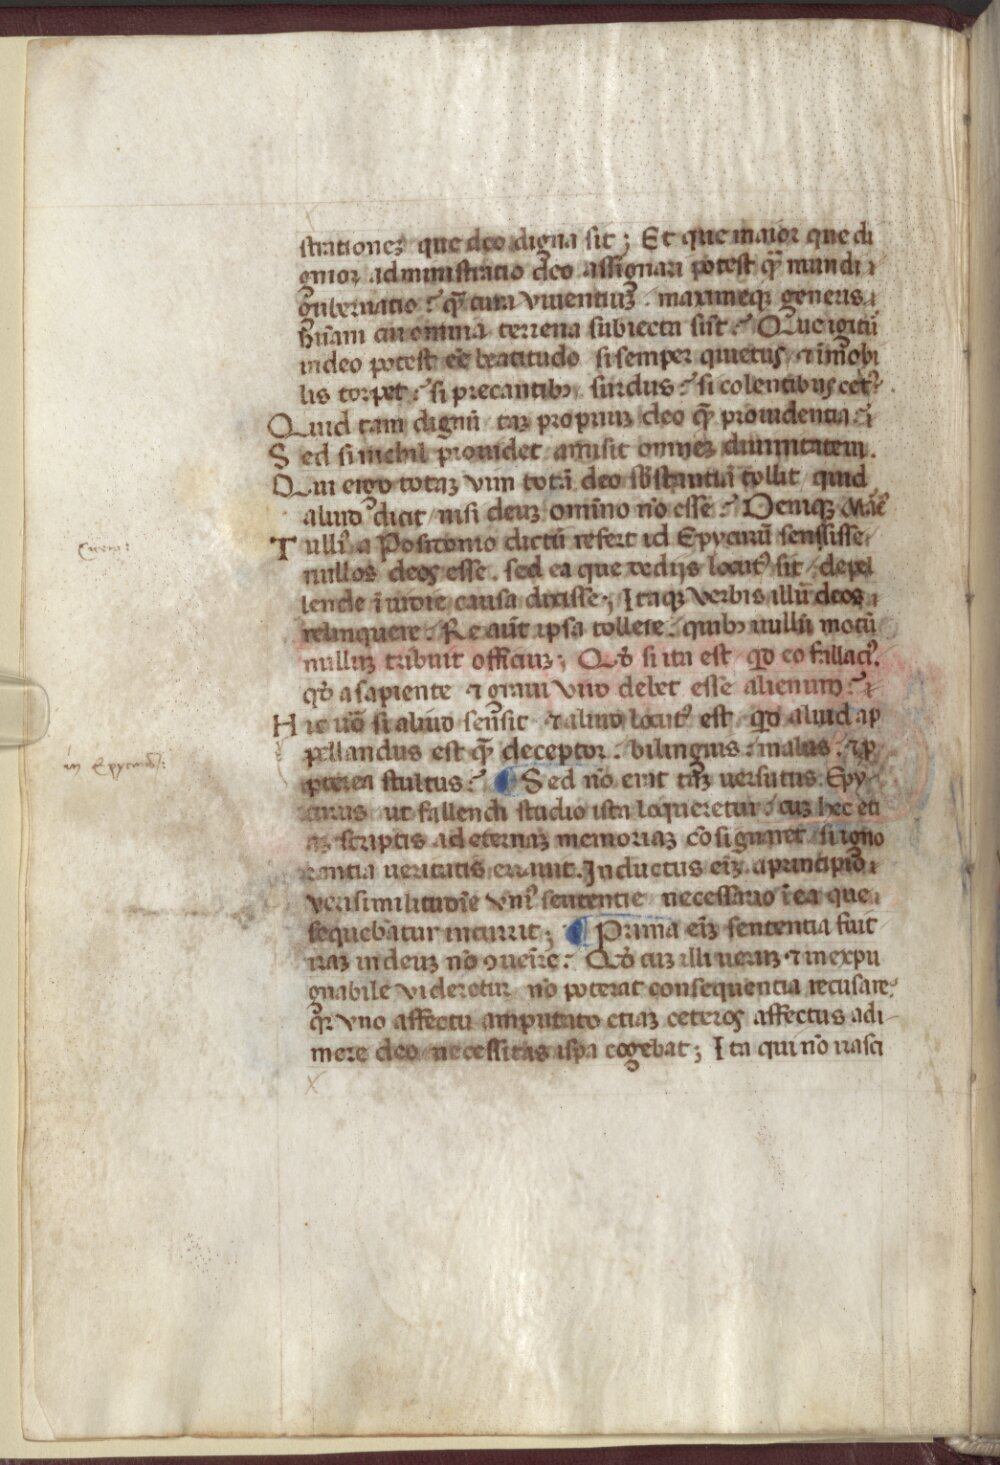 strationeꝫ que deo digna sit ; Et que maior que di
gnior administratio deo assignari potest qͣ mundi
gubernatio ? qͣ cura viventiuꝫ . maximeqꝫ generis
hūani cui omnia terrena subiecta sūt ? Que igitū
in deo potest eē beatitudo si semper quietus ⁊ īmobi
lis torpet ? si precantibꝫ surdus ? si colentibus cec⁹ .
Quid tam dignū taꝫ propriuꝫ deo qͣ prouidentia ?
Sed si nichil prouidet amisit omneꝫ diuinitatem .
Qui ergo totaꝫ vim totā deo sb̄stantiā tollit quid
aliud dicit nisi deuꝫ omīno nō esse ? Deniqꝫ Mͬc⁹
Tulli⁹ a Positonio dictū refert id Epycurū sensisse
nullos deos esse . sed ea que de dijs locut⁹ sit depel
lende īuidie causa dixisse ; Itaqꝫ verbis illū deos
relinquere . Re aūt ipsa tollere . quibꝫ nullū motū
nulluꝫ tribuit officiuꝫ ; Qd̓ si ita est qd̓ eo fallaci⁹ .
qd̓ a sapiente ⁊ graui viro debet esse alienum ?
Hic vō si aliud sēnsit ⁊ aliud locut⁹ est qd̓ aliud ap
pellandus est qͣ deceptor . bilinguis . malus . ⁊ ꝓ
pterea stultus ? ¶ Sed nō erat taꝫ uersutus Epy
curus ut fallendi studio ista loqueretur . cuꝫ hec eti
aꝫ scriptis ad eternaꝫ memoriaꝫ cōsignaret si igno
rantia ueritatis errauit . Inductus eīꝫ a principio
verisimilitudīe vni⁹ sententie necessario ī ea que
sequebātur incurrit ; ¶ Prima eīꝫ sententia fuit
iraꝫ in deuꝫ nō ꝯuenīre : Qd̓ cuꝫ illi ueruꝫ ⁊ inexpu
gnabile videretur nō poterat consequentia recusare
qꝛ vno affectu amputato etiaꝫ ceteros affectus adi
mere deo necessitas ispa cogebat ; Ita qui nō irasci
Cicero :
in Epycurū :